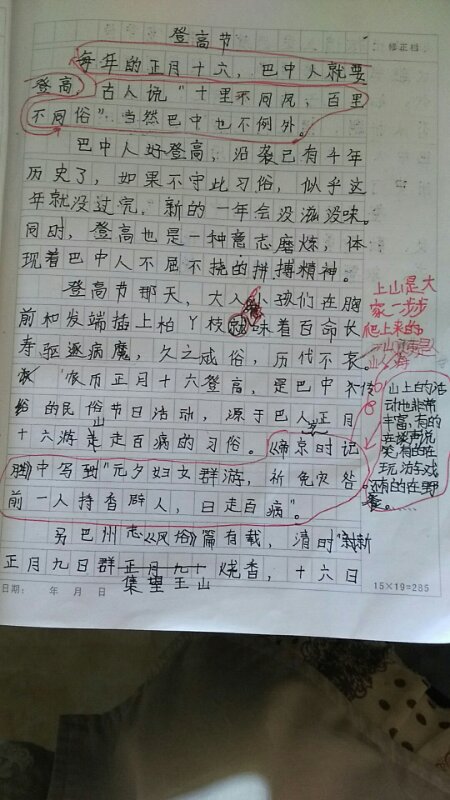 修正栏
登高节
每年的正月十六，巴中人就要
登高 古人说"十里不同风，百里
不同俗"当然巴中也不例外。
巴中人好登高，沿袭已有千年
历史了，如果不守此习俗，似乎这
年就没过完，新的一年会没滋没味。
同时，登高也是一种意志磨炼，体
现着巴中人不屈不挠的拼搏精神。
登高节那天，大人小孩们在胸
前和发端插上柏丫枝 味着百命长
寿驱逐病魔，久之成俗，历代不衰。
农历正月十六登高，是巴中
的民俗节日活动，源于巴人正月
十六游山走百病的习俗。《帝京岁时记
胜》中写到"元夕妇女群游，祈免灾咎
前一人持香辟人，曰走百病"。
另巴州志《风俗》篇有载，清时"新
正月九日群正月九十烧香，十六日
集望王山
上山是大
家一步步
爬上来的
山上的活
动也非常
丰富，有的
在谈
笑 有的在
玩 游戏
还有的在野
餐。……
日期： 年 月 日
15×19=285